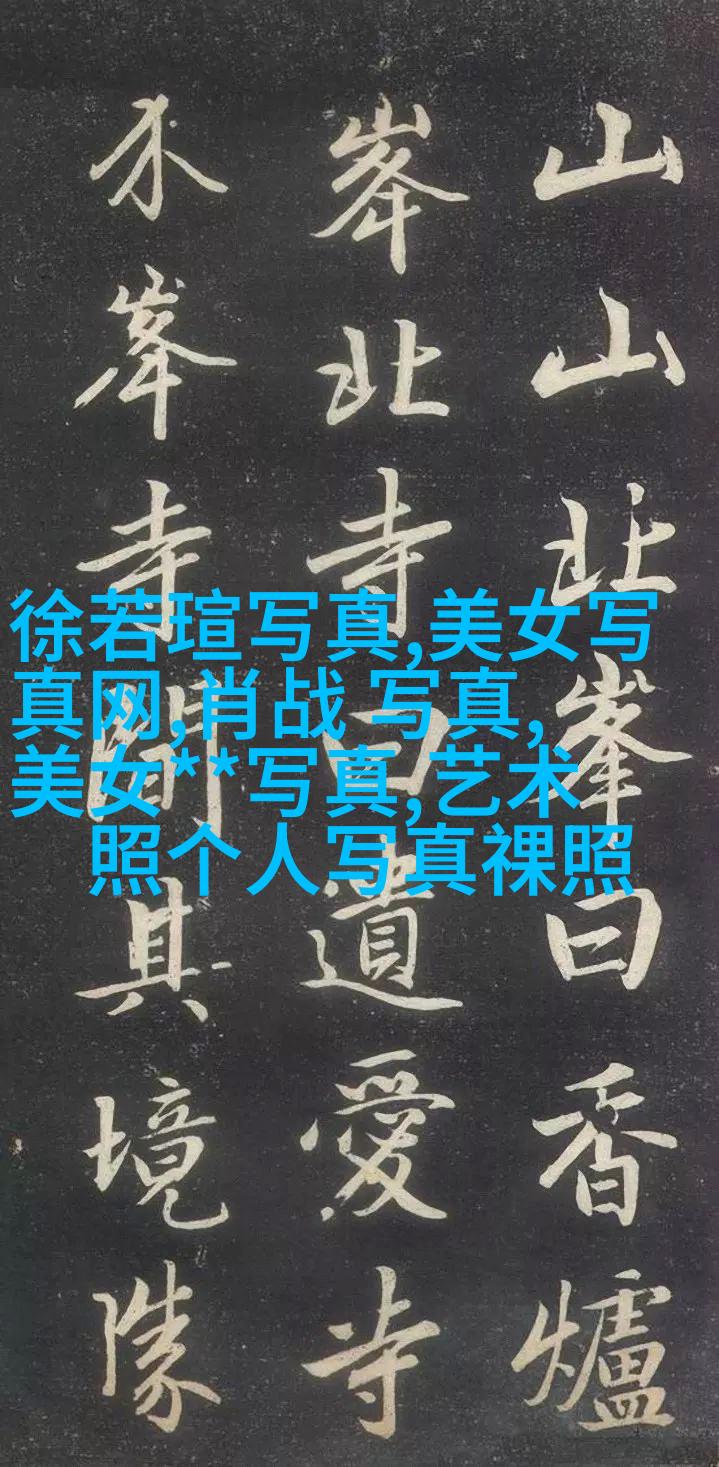 山山北峯曰香爐
峯北寺曰遺愛寺
介峯寺間其境勝
徐若瑄写真,美女写
真网,肖战 写真,
美女**写真,艺术
照个人写真祼照